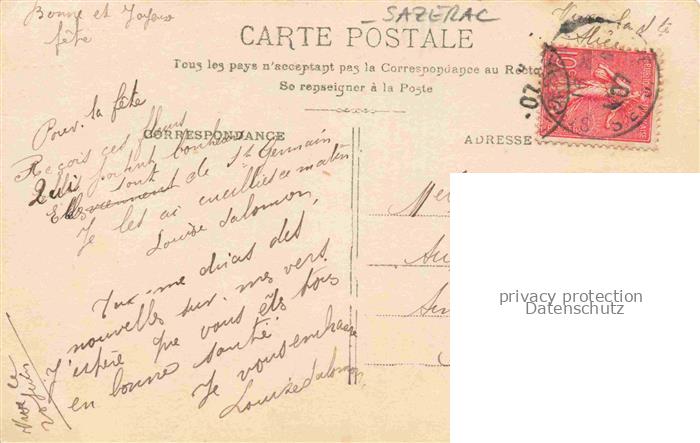 Bonne et Joyeuse
fête
SAZERAC
CARTE POSTALE
Tous les pays n'acceptant pas la Correspondance au Recto
Se renseigner à la Poste
CORRESPONDANCE
ADRESSE
Pour ta fête
Reçois ces fleurs
Qui portent bonheur
Elles viennent sont de St Germain
Je les ai cueillies ce matin
Louise Salomon,
Tu me diras des
nouvelles sur mes vers.
J'espère que vous êtes tous
en bonne santé.
Je vous embrasse
Louise Salomon,
le
Juin
10
07
privacy protection
Datenschutz